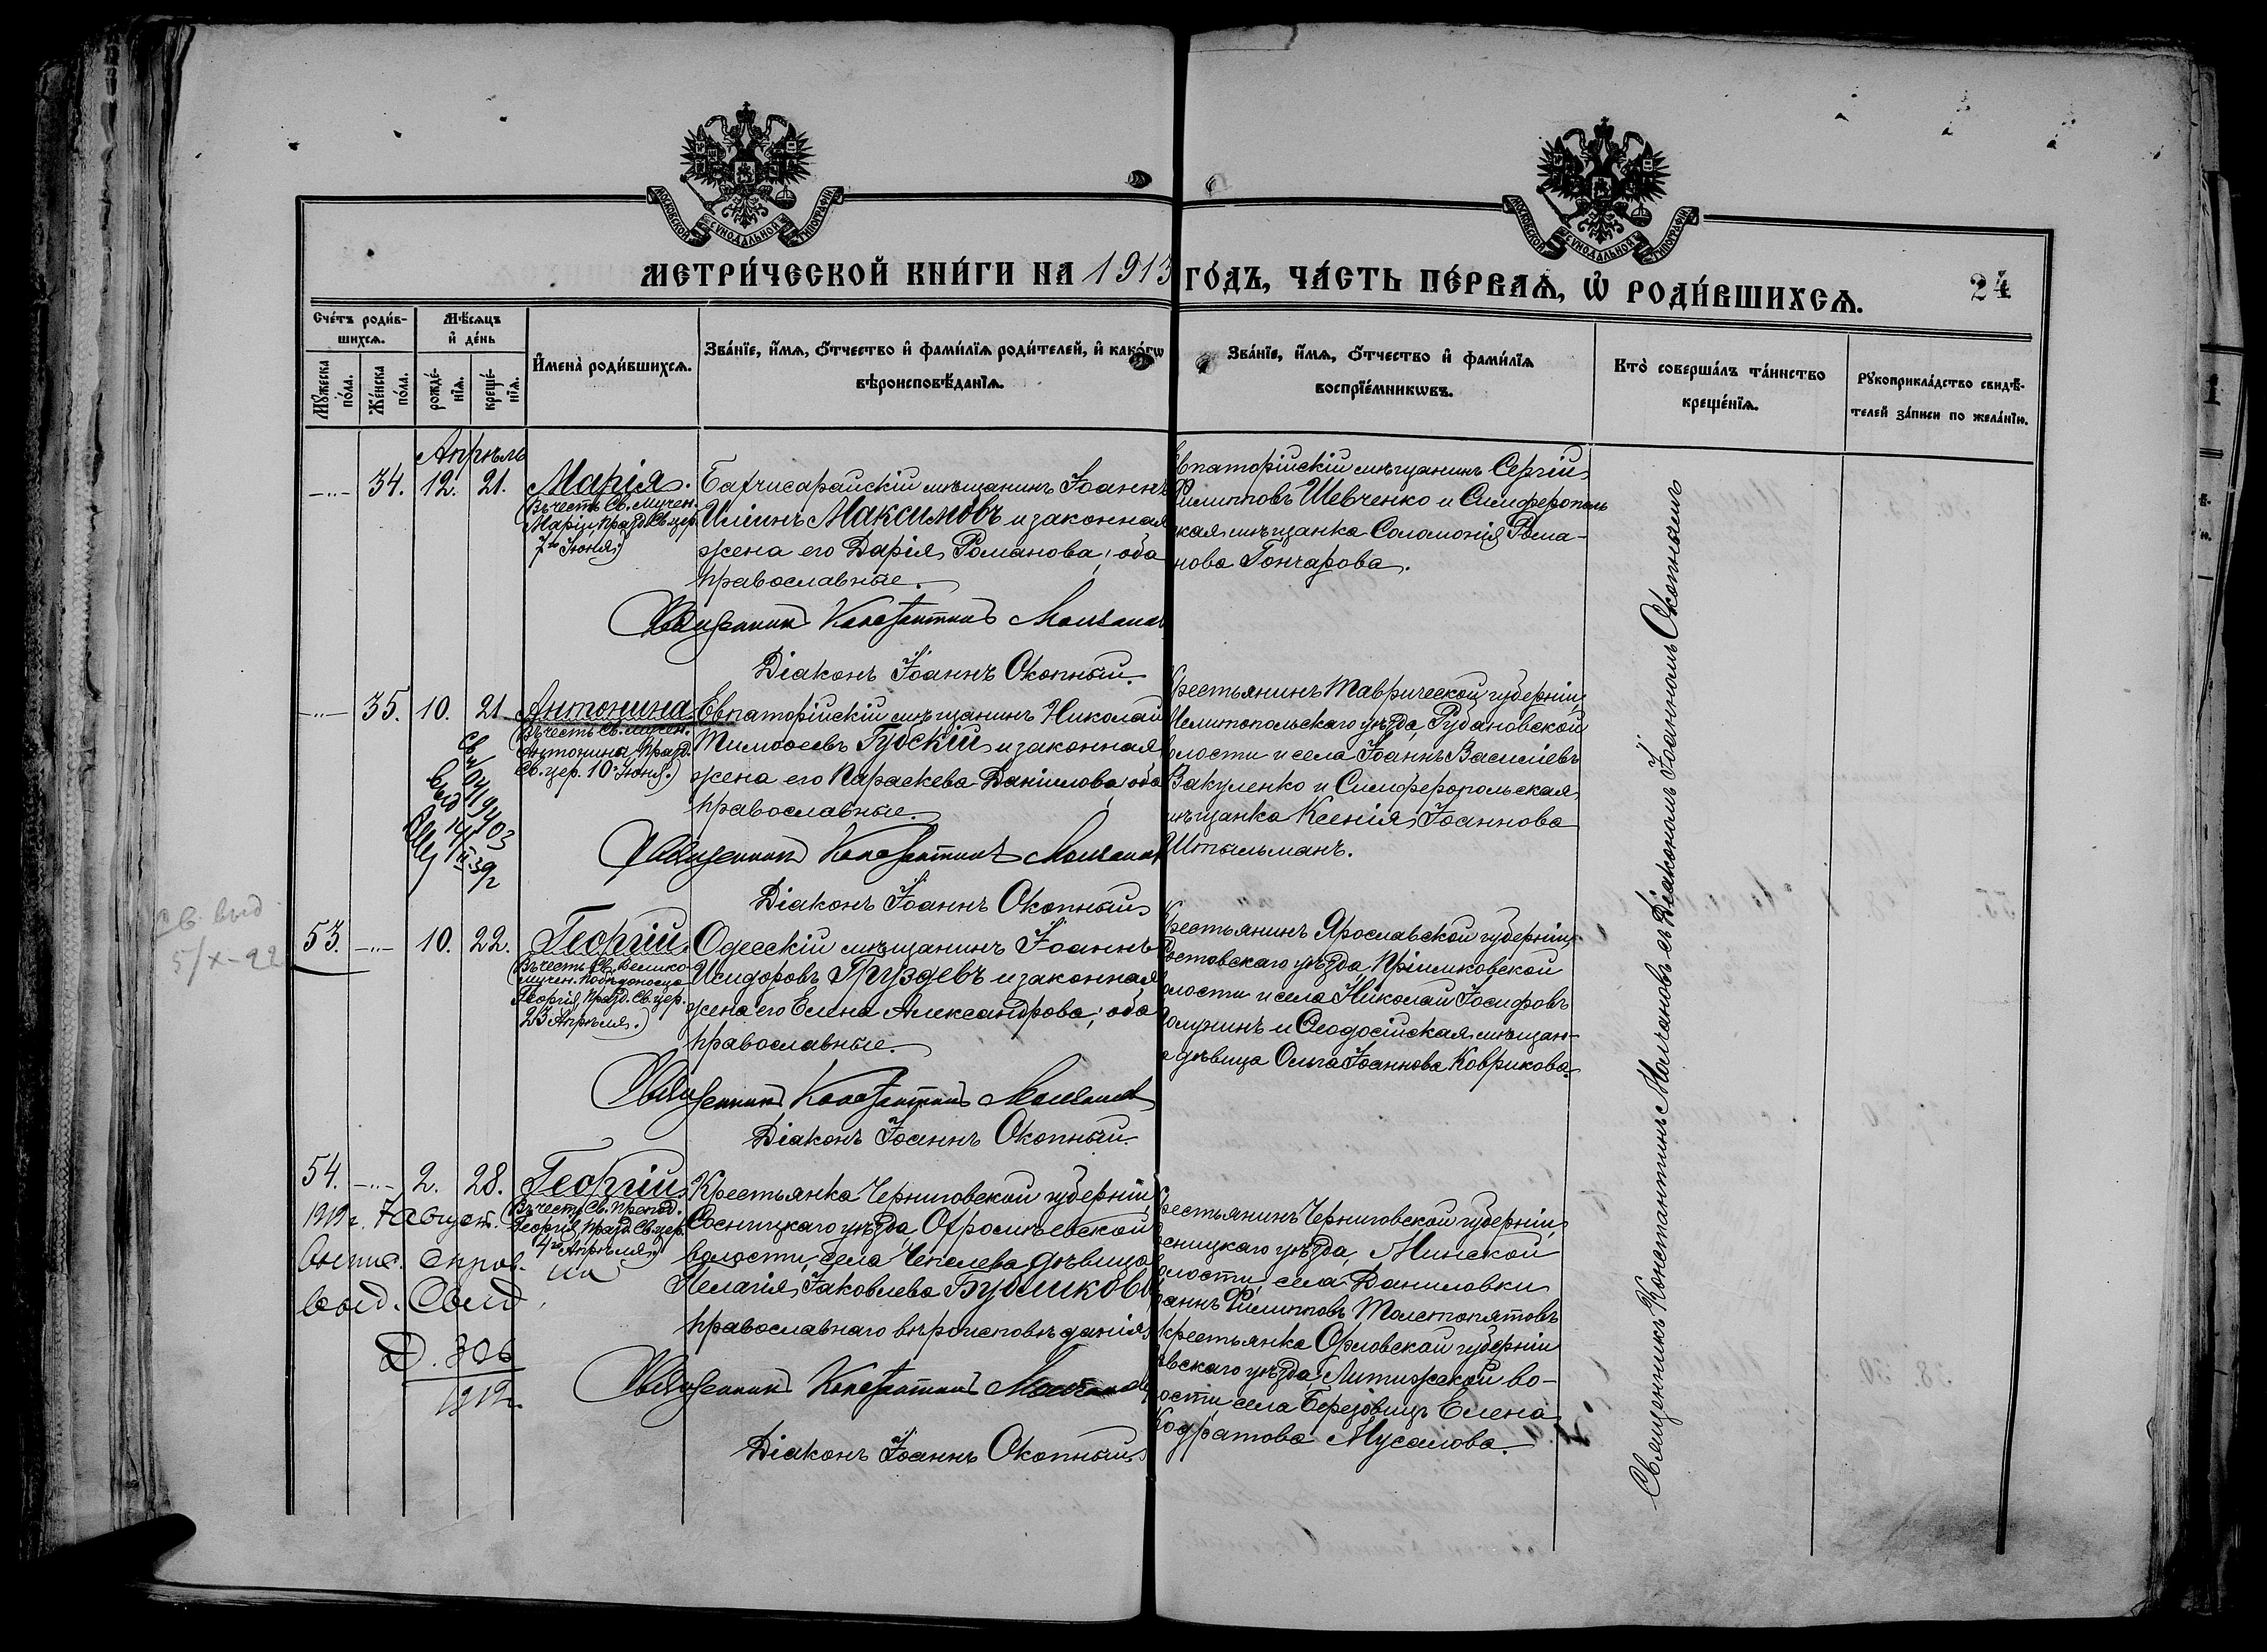 МОСКОВСКОЙ СУНОДАЛЬНОЙ ТИПОГРАФІИ
МОСКОВСКОЙ СУНОДАЛЬНОЙ ТИПОГРАФІИ
МЕТРИ́ЧЕСКОЙ КНИ́ГИ НА 1913 ГО́ДЪ, ЧА́СТЬ ПЕ́РВАѦ, Ѡ҆ РОДИ́ВШИХСѦ.
24
Сче́тъ роди́в-
шихсѧ.
Мѣ́сѧцъ
и҆ де́нь
Мꙋ́жеска
по́ла.
Же́нска
по́ла.
рожде́-
нїѧ.
креще́-
нїѧ.
И҆мена̀ роди́вшихсѧ.
Зва́нїе, и҆́мѧ, ѻ҆́тчество и҆ фами́лїѧ роди́телей, и҆ како́гѡ
вѣроисповѣ́данїѧ.
Зва́нїе, и҆́мѧ, ѻ҆́тчество и҆ фами́лїѧ
воспрїе́мникѡвъ.
Кто̀ соверша́лъ та́инство
креще́нїѧ.
Рꙋкоприкла́дство свидѣ́-
телей за́писи по жела́нїю.
Апрѣль
34. 12. 21.
Марія.
(Въ честь Св. мучен.
Маріи, празд. Св. цер.
7го Іюня.)
Бахчисарайскій мѣщанинъ Іоаннъ
Иліинъ Максимовъ и законная
жена его Дарія Романова; оба
православные.
Священникъ Константинъ Молчановъ
Діаконъ Іоаннъ Окопный.
Евпаторійскій мѣщанинъ Сергій
Филипповъ Шевченко и Симферополь
ская мѣщанка Соломонія Рома-
нова Гончарова.
35. 10. 21.
Антонина
(Въ честь Св. мучен.
Антонины, празд.
Св. цер. 10 Іюня.)
Евпаторійскій мѣщанинъ Николай
Тимоѳеевъ Губскій и законная
жена его Параскева Даніилова; оба
православные.
Священникъ Константинъ Молчановъ
Діаконъ Іоаннъ Окопный
Крестьянинъ Таврической губерніи,
Мелитопольскаго уѣзда, Рубановской
волости и села Іоаннъ Василіевъ
Вакуленко и Симферопольская
мѣщанка Ксенія Іоаннова
Штальманъ.
Св. выд.
5/X-22
53. 10. 22.
Георгій
(Въ честь Св. Велико-
мучен. Побѣдоносца
Георгія, празд. Св. цер.
23 Апрѣля.)
Одесскій мѣщанинъ Іоаннъ
Исидоровъ Груздевъ и законная
жена его Елена Александрова; оба
православные.
Священникъ Константинъ Молчановъ
Діаконъ Іоаннъ Окопный.
Крестьянинъ Ярославской губерніи,
Ростовскаго уѣзда, Пріимковской
волости и села Николай Іосифовъ
и Ѳеодосійская мѣщан-
ка дѣвица Ольга Іоаннова Коврикова.
54. 2. 28.
Георгій
(Въ честь Св. Препод.
Георгія, празд. Св. цер.
4го Апрѣля)
1912 г. 7 август.
выд. Свид.
306
1912.
Крестьянка Черниговской губерніи,
Сосницкаго уѣзда, Охромѣевской
волости, села Чепелева дѣвица
Пелагія Іаковлева
православнаго вѣроисповѣданія
Священникъ Константинъ Молчановъ
Діаконъ Іоаннъ Окопный
Крестьянинъ Черниговской губерніи,
Сосницкаго уѣзда, Минской
волости, села Даниловки
Іоаннъ Филипповъ Толстопятовъ
крестьянка Орловской губерніи
уѣзда, Литижской во-
лости села Березовицъ Елена
Кодратова Мусалова.
Священникъ Константинъ Молчановъ съ Діакономъ Іоанномъ Окопнымъ